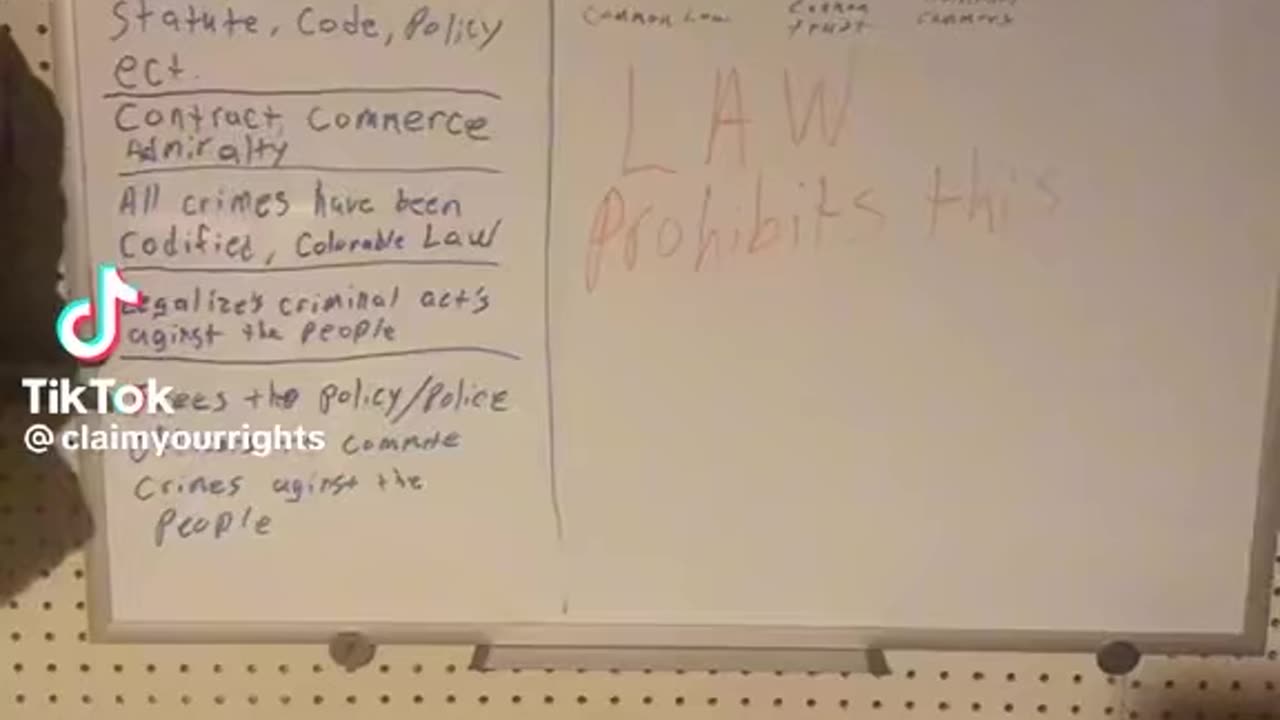 Statute, Code, Policy
ect.
Contract, Commerce
Admiralty
All crimes have been
Codified, Colorable Law
Legalize's criminal act's
aginst the people
the policy/Police
commite
Crimes aginst the
People
Common Law
Common
trust
LAW
Prohibits this
TikTok
@claimyourrights